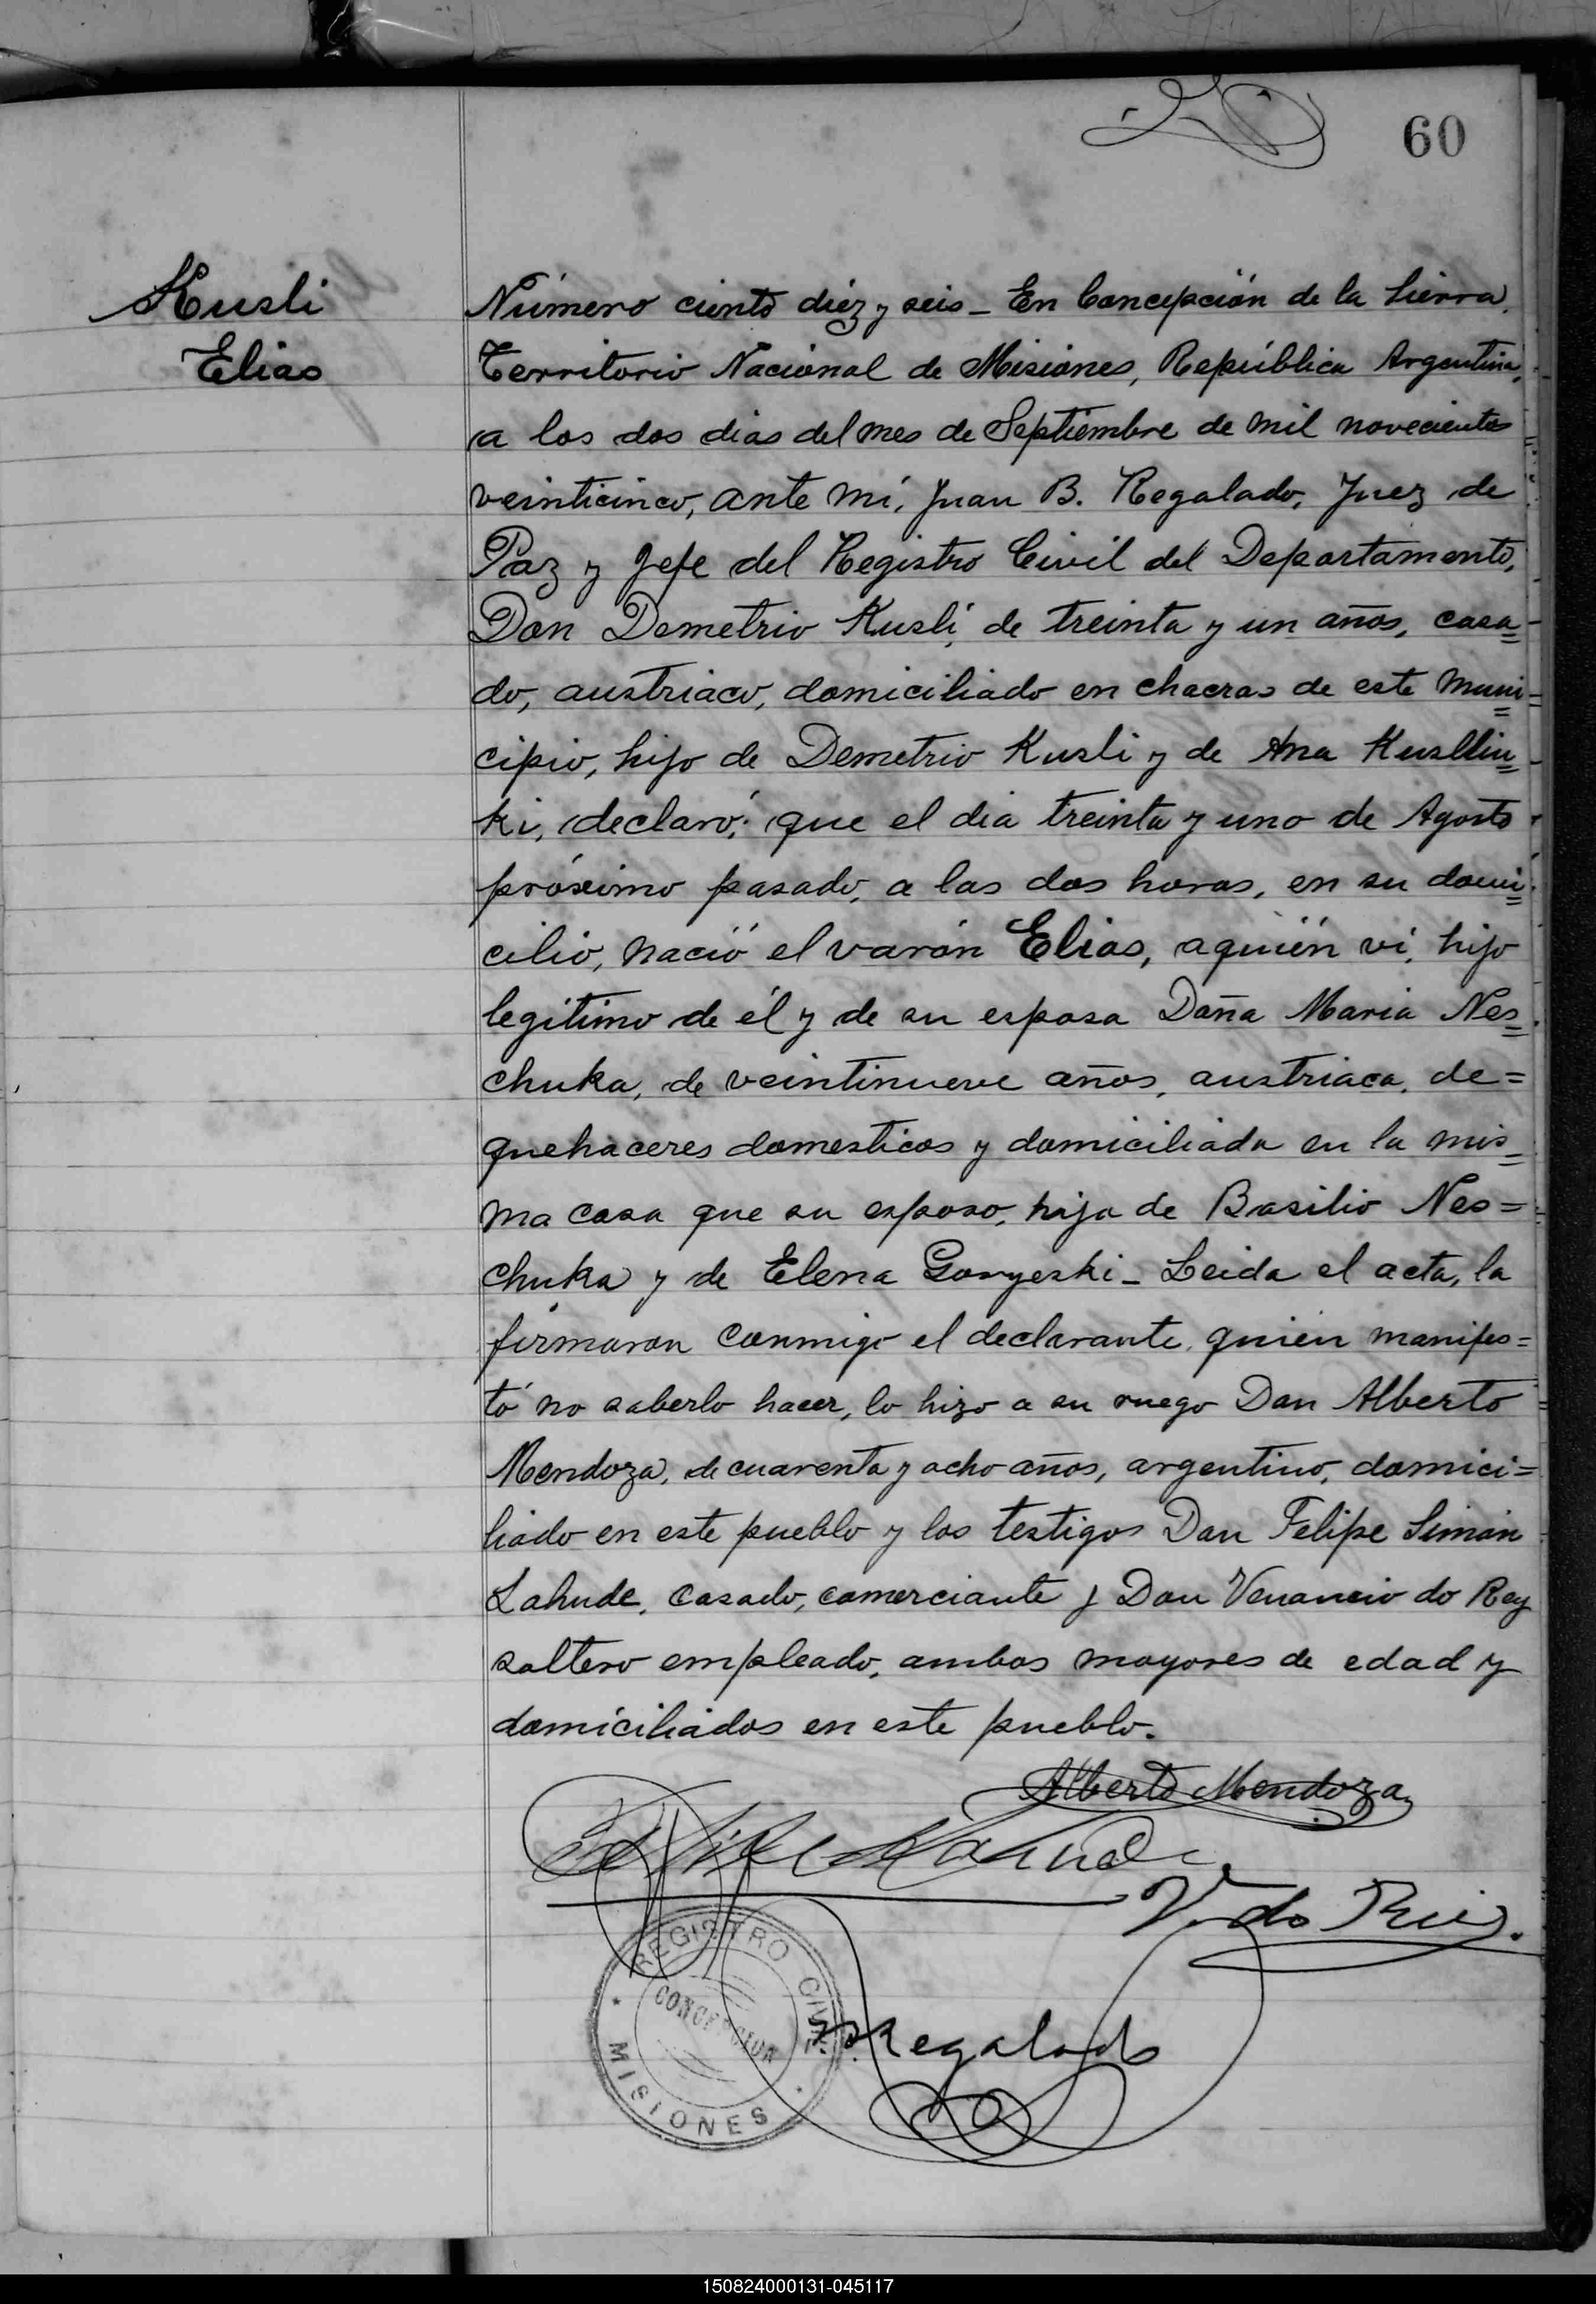 60
Kusli
Elias
Número ciento diéz y seis - En Concepción de la Sierra,
Territorio Nacional de Misiones, República Argentina,
a los dos dias del mes de Septiembre de mil novecientos
veinticinco, ante mi, Juan B. Regalado, Juez de
Paz y Jefe del Registro Civil del Departamento,
Don Demetrio Kusli, de treinta y un años, casa=
do, austriaco, domiciliado en chacras de este muni=
cipio, hijo de Demetrio Kusli y de Ana Kusllin=
ki, declaró: que el dia treinta y uno de Agosto
próximo pasado, a las dos horas, en su domi=
cilio, nació el varón Elias, a quién vi, hijo
legitimo de él y de su esposa Doña Maria Nes=
chuka, de veintinueve años, austriaca, de=
quehaceres domesticos y domiciliada en la mis=
ma casa que su esposo, hija de Basilio Nes=
chuka y de Elena Gonyeski - Leida el acta, la
firmaron conmigo el declarante, quien manifes=
tó no saberlo hacer, lo hizo a su ruego Don Alberto
Mendoza, de cuarenta y ocho años, argentino, domici=
liado en este pueblo y los testigos Don Felipe Simón
Lahude, casado, comerciante y Don Venancio do Rey
soltero empleado, ambos mayores de edad y
domiciliados en este pueblo.
Alberto Mendoza
Felipe Lahude
V. do Rey
REGISTRO CIVIL
CONCEPCION
MISIONES
Regalado
150824000131-045117